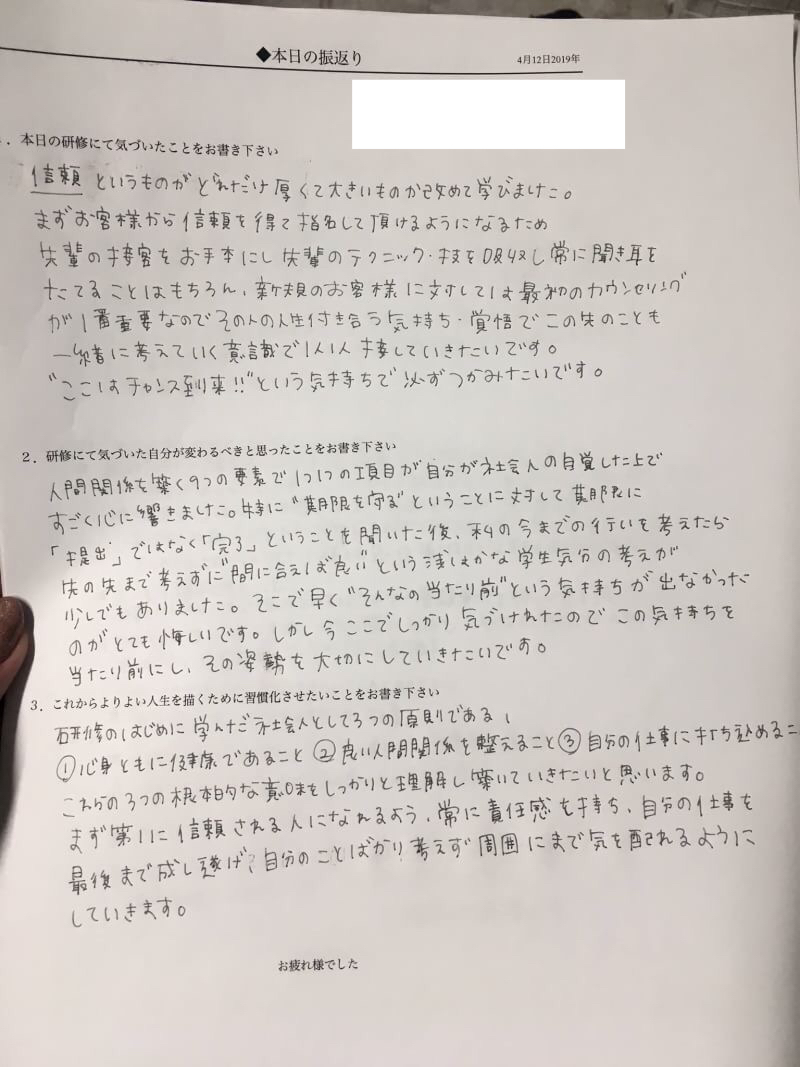 ◆本日の振返り
4月12日2019年
1．本日の研修にて気づいたことをお書き下さい
信頼というものがどれだけ厚くて大きいものか改めて学びました。
まずお客様から信頼を得て指名して頂けるようになるため
先輩の接客をお手本にし先輩のテクニック・技を吸収し常に聞き耳を
たてることはもちろん、新規のお客様に対しては最初のカウンセリング
が1番重要なのでその人の人生付き合う気持ち・覚悟でこの先のことも
一緒に考えていく意識で1人1人接していきたいです。
"ここはチャンス到来!!"という気持ちで必ずつかみたいです。
2．研修にて気づいた自分が変わるべきと思ったことをお書き下さい
人間関係を築く9つの要素で1つ1つの項目が自分が社会人の自覚した上で
すごく心に響きました。特に"期限を守る"ということに対して期限に
「提出」ではなく「完了」ということを聞いた後、私の今までの行いを考えたら
先の先まで考えずに"間に合えば良い"という浅はかな学生気分の考えが
少しでもありました。そこで早く"そんなの当たり前"という気持ちが出なかった
のがとても悔しいです。しかし今ここでしっかり気づけれたのでこの気持ちを
当たり前にし、その姿勢を大切にしていきたいです。
3．これからよりよい人生を描くために習慣化させたいことをお書き下さい
研修のはじめに学んだ社会人として3つの原則である、
①心身ともに健康であること②良い人間関係を整えること③自分の仕事に打ち込めるこ
これらの3つの根本的な意味をしっかりと理解し築いていきたいと思います。
まず第1に信頼される人になれるよう、常に責任感を持ち、自分の仕事を
最後まで成し遂げ、自分のことばかり考えず周囲にまで気を配れるように
していきます。
お疲れ様でした